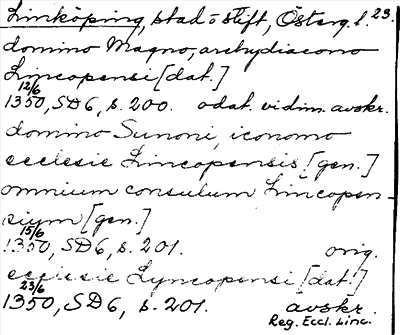 Linköping, stad o stift, Österg. l. 23.
domino Magno, archydiacono
Lincopensi [dat.]
12/6
1350, SD6, s. 200. odat. vidim. avskr.
domino Sunoni, iconomo
ecclesie Lincopensis [gen.]
omnium consulum Lincopen-
sium [gen.]
15/6
1350, SD6, s. 201. orig.
ecclesie Lyncopensi [dat.]
23/6
1350, SD6, s. 201. avskr.
Reg. Eccl. Linc.